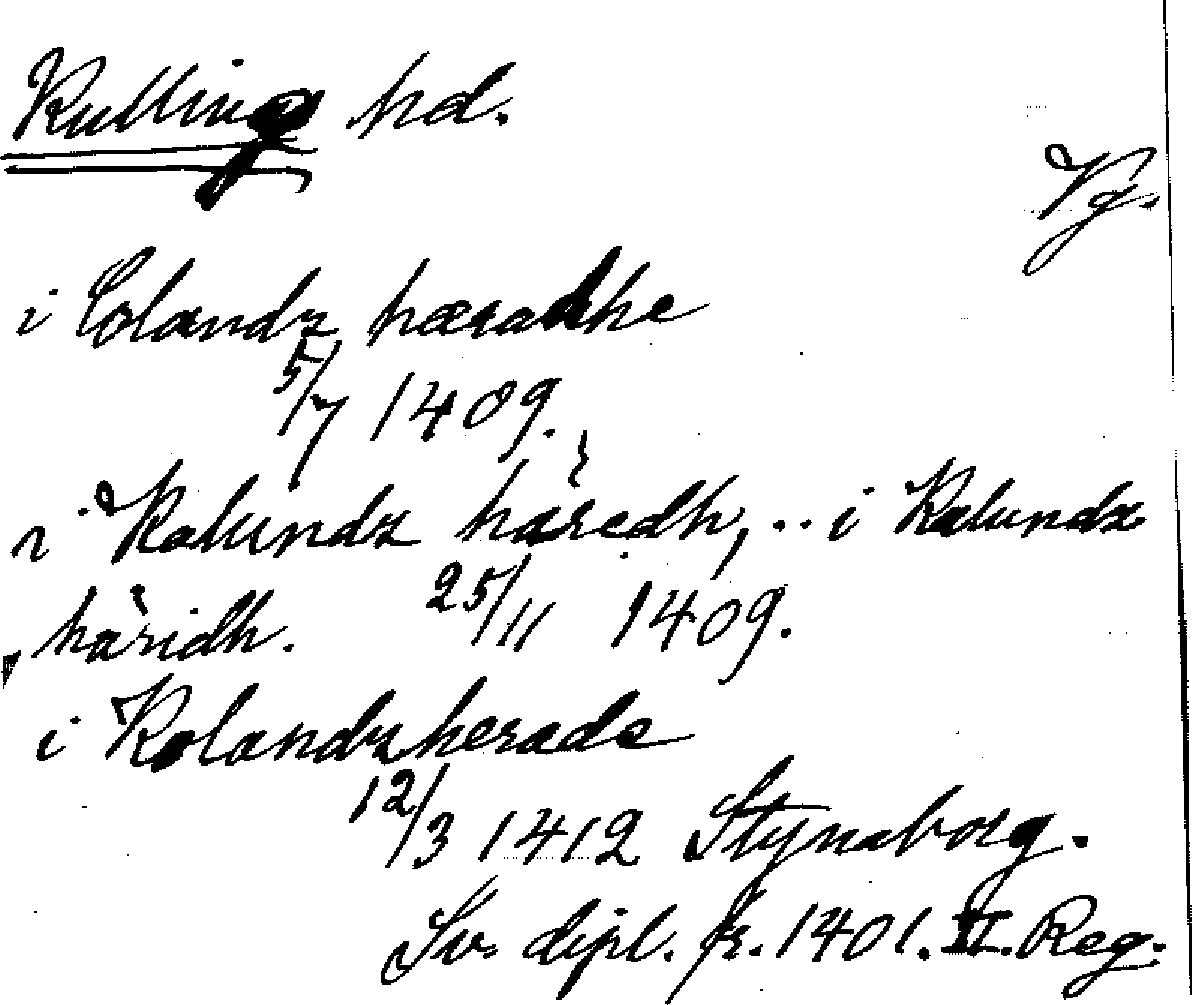 Kullings hd.
Vg.
i Colandz hæradhe
5/7 1409.
i Kolundz håredh, .. i Kolundz
håridh. 25/11 1409.
i Kolandzherade
12/3 1412 Stynaborg.
Sv. dipl. fr. 1401. II. Reg.